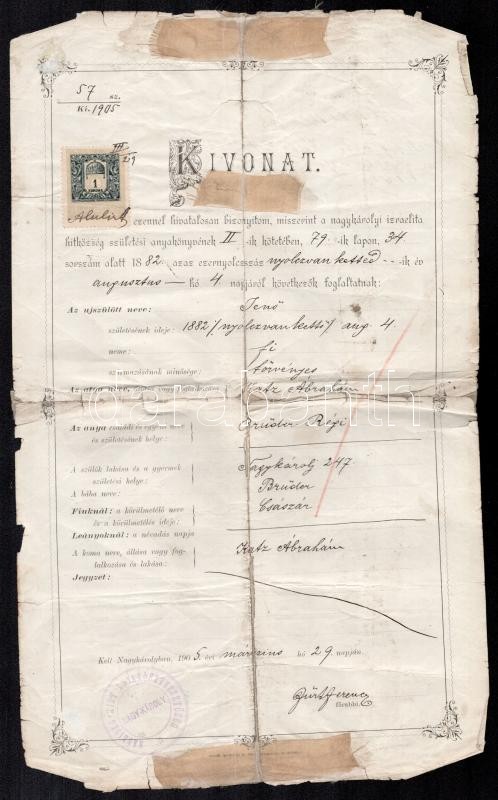 57 sz.
Ki. 1905
VII/29
1
KIVONAT.
Alulirt ezennel hivatalosan bizonyitom, miszerint a nagykárolyi izraelita
hitközség születési anyakönyvének II -ik kötetében, 79. -ik lapon, 34
sorszám alatt 1882. azaz ezernyolczszáz nyolczvanketted -ik év
augusztus hó 4 napjáról következők foglaltatnak:
Az ujszülött neve: Jenő
születésének ideje: 1882 /nyolczvankettő/ aug. 4.
neme: fi
származásának minősége: törvényes
Az atya neve, Katz Abrahám
Az anya családi és egyéni neve Brüder Régi
és születésének helye:
A szülők lakása és a gyermek Nagykároly 247
születési helye:
A bába neve: Brüder
Fiuknál: a körülmetélő neve Császár
és a körülmetélés ideje:
Leányoknál: a névadás napja
A koma neve, állása vagy fog- Katz Abrahám
lalkozása és lakása:
Jegyzet:
Kelt Nagykárolyban, 1905. évi márczius hó 29. napján.
Fürt Ferencz
főrabbi.
NAGYKÁROLY
darabanth